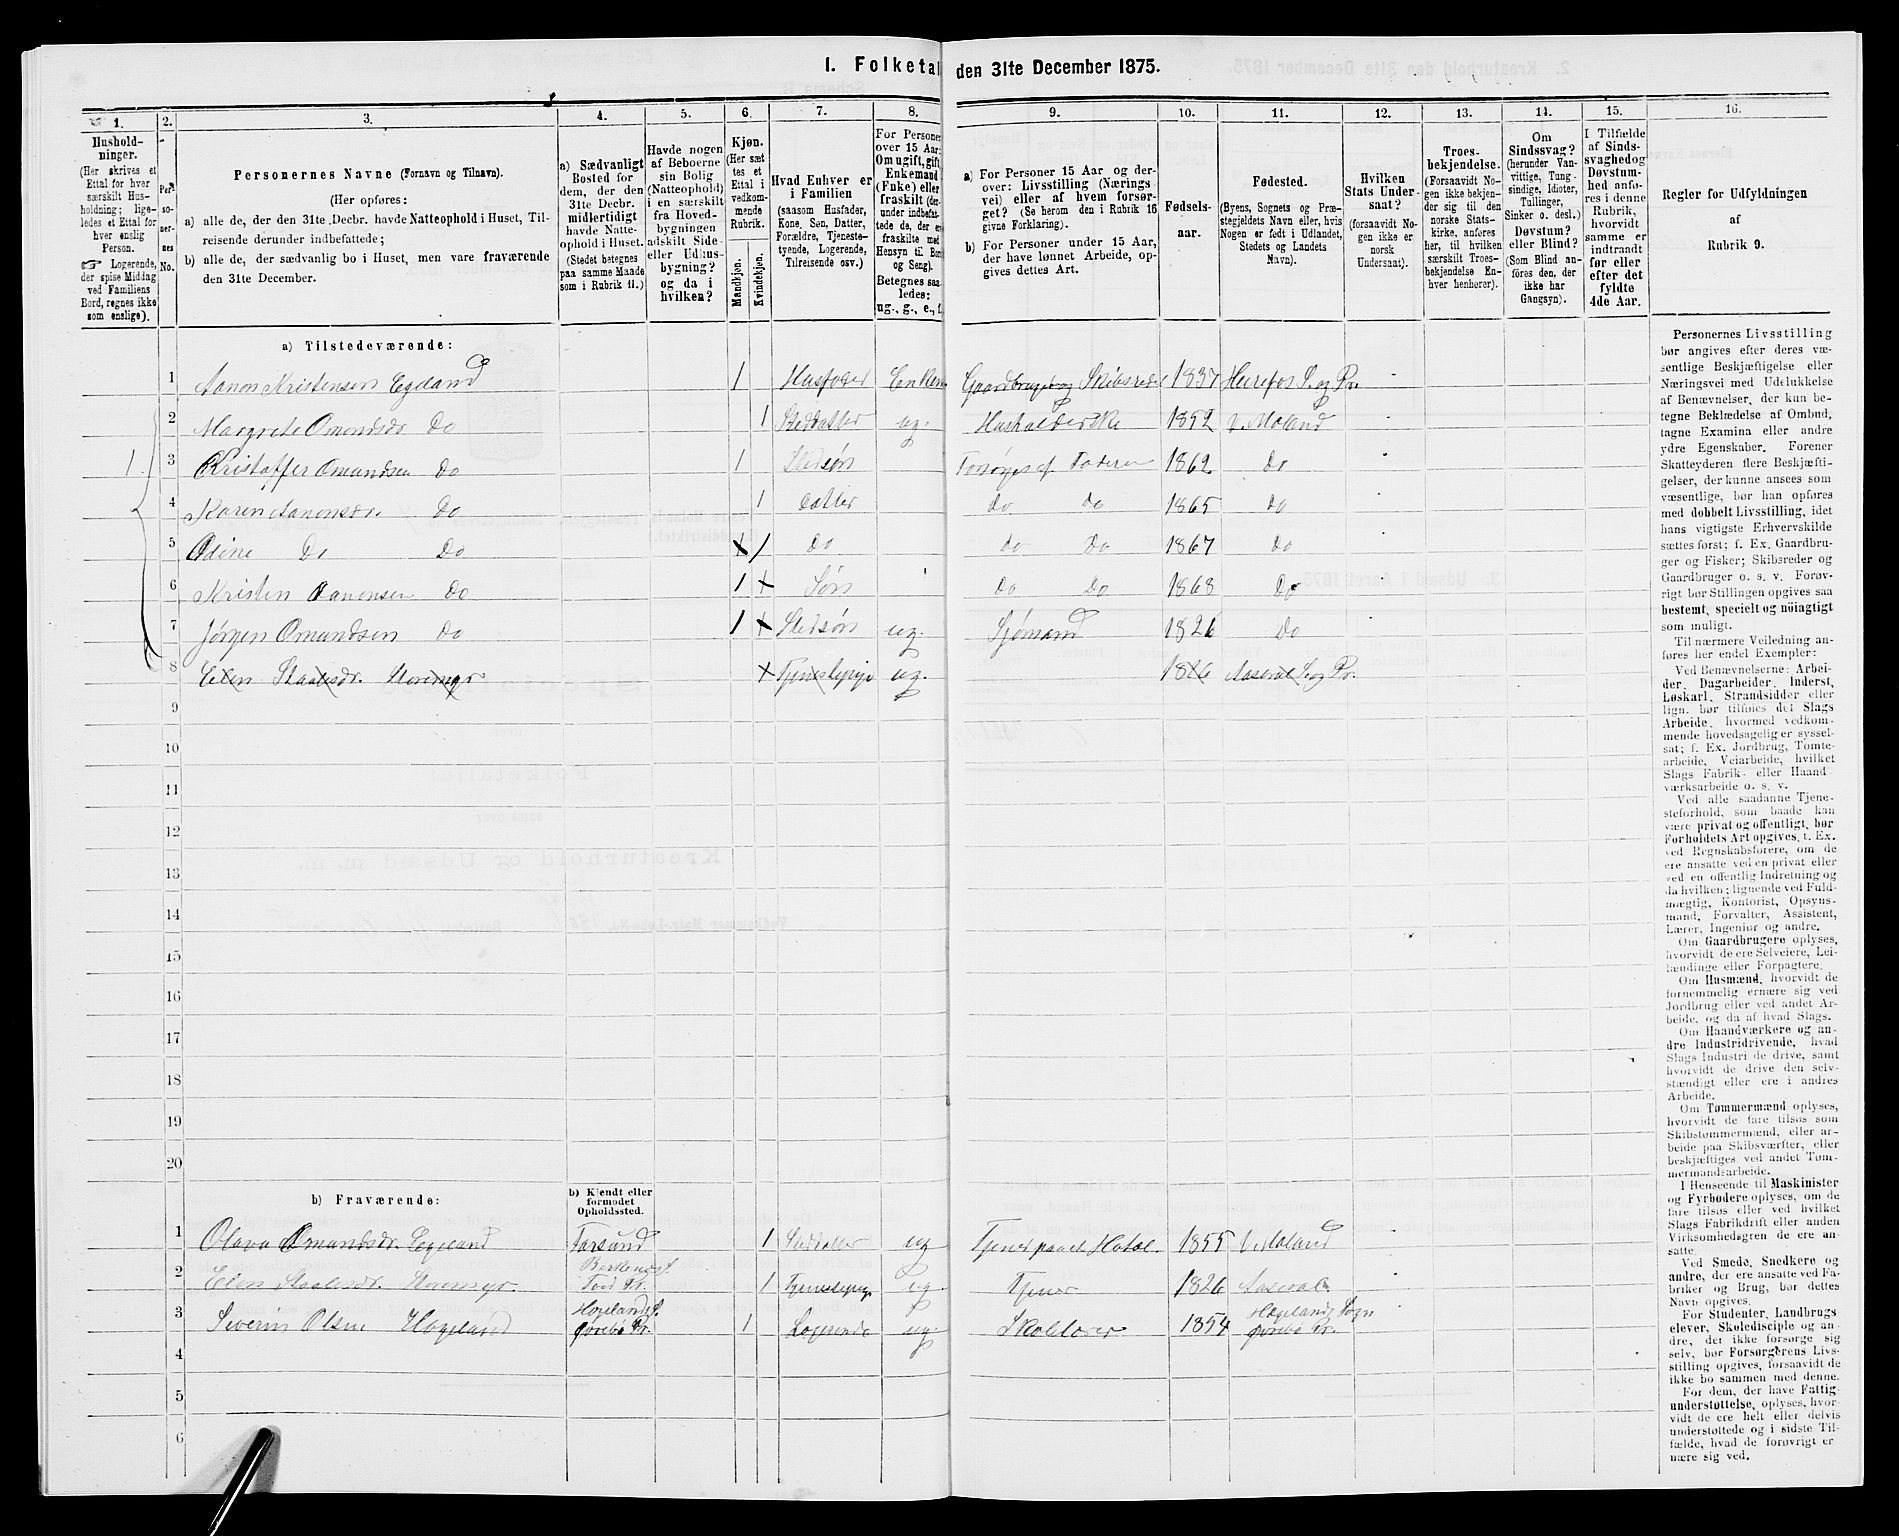 I. Folketal den 31te December 1875.
1. 2. 3. 4. 5. 6. 7. 8. 9. 10. 11. 12. 13. 14. 15. 16.
Hushold-
ninger.
(Her skrives et
Ettal for hver
særskilt Hus-
holdning; lige-
ledes et Ettal for
hver enslig
Person.
☞ Logerende,
der spise Middag
ved Familiens
Bord, regnes ikke
som enslige).
Per-
so-
ner-
nes
No.
Personernes Navne (Fornavn og Tilnavn).
(Her opføres:
a) alle de, der den 31te Decbr. havde Natteophold i Huset, Til-
reisende derunder indbefattede;
b) alle de, der sædvanlig bo i Huset, men vare fraværende
den 31te December.
a) Sædvanligt
Bosted for
dem, der den
31te Decbr.
midlertidigt
havde Natte-
ophold i Huset.
(Stedet betegnes
paa samme Maade
som i Rubrik 11.)
Havde nogen
af Beboerne
sin Bolig
(Natteophold)
i en særskilt
fra Hoved-
bygningen
adskilt Side-
eller Udhus-
bygning?
og da i
hvilken?
Kjøn.
(Her sæt
tes et
Ettal i
vedkom-
mende
Rubrik.
Mandkjøn.
Kvindekjøn.
Hvad Enhver er
i Familien
(saasom Husfader,
Kone, Søn, Datter,
Forældre, Tjeneste-
tyende, Logerende,
Tilreisende osv.)
For Personer
over 15 Aar:
Om ugift, gift,
Enkemand
(Enke) eller
fraskilt (der-
under indbefat-
tede de, der er
fraskilte med
Hensyn til Bord
og Seng).
Betegnes saa-
ledes:
ug., g., e., f.
a) For Personer 15 Aar og der-
over: Livsstilling (Nærings-
vei) eller af hvem forsør-
get? (Se herom den i Rubrik 16
givne Forklaring).
b) For Personer under 15 Aar,
der have lønnet Arbeide, op-
gives dettes Art.
Fødsels-
aar.
Fødested.
(Byens, Sognets og Præ-
stegjeldets Navn eller, hvis
Nogen er født i Udlandet,
Stedets og Landets
Navn).
Hvilken
Stats Under-
saat?
(forsaavidt No-
gen ikke er
norsk
Undersaat).
Troes-
bekjendelse.
(Forsaavidt No-
gen ikke bekjen-
der sig til den
norske Stats-
kirke, anføres
her, til hvilken
særskilt Troes-
bekjendelse En-
hver henhører).
Om
Sindssvag?
(herunder Van-
vittige, Tung-
sindige, Idioter,
Tullinger,
Sinker o. desl.)
Døvstum?
eller Blind?
(Som Blind an-
føres den, der
ikke har
Gangsyn).
I Tilfælde
af Sinds-
svaghed og
Døvstum-
hed anfø-
res i denne
Rubrik,
hvorvidt
samme er
indtraadt
før eller
efter det
fyldte
4de Aar.
Regler for Udfyldningen
af
Rubrik 9.
a) Tilstedeværende:
1 Aanon Kristensen Egeland 1 Husfader Enkem Gaardbruger og Skibsreder 1837 Herefos S. og Pr.
2 Margrete Omundsdr Do 1 Steddatter ug. Husholderske 1852 V. Moland
1. 3 Kristoffer Omundsen Do 1 Stedsøn Forsørges af Faderen 1862 Do
4 Karen Aanonsdr. Do 1 Datter do do 1865 Do
5 Odine Do Do 1 Do do Do 1867 Do
6 Kristen Aanonsen Do 1 Søn do Do 1868 Do
7 Jörgen Omundsen Do 1 Stedsøn ug. Sjømand 1826 Do
8 Elen Staalesdr. Storemyr Tjenestepige ug. 1826 Aaseral S. og Pr.
9
10
11
12
13
14
15
16
17
18
19
20
b) Fraværende:
b) Kjendt eller
formodet
Opholdssted.
1 Olava Omundsdr. Egeland Farsund 1 Steddatter ug Tjener paa et Hotel. 1855 V. Moland
2 Elen Staalesdr. Storemyr. Birkenes S. Tved Pr. 1 Tjenestepige ug. Tjener 1826 Aaseral
3 Severin Olsen Hægeland Hægelands S. Øvrebø Pr. 1 Logerende ug. Skolelærer 1854 Hægelands Sogn Øvrebø Pr.
4
5
6
Personernes Livsstilling
bør angives efter deres væ-
sentlige Beskjæftigelse eller
Næringsvei med Udelukkelse
af Benævnelser, der kun be-
tegne Beklædelse af Ombud,
tagne Examina eller andre
ydre Egenskaber. Forener
Skatteyderen flere Beskjæfti-
gelser, der kunne ansees som
væsentlige, bør han opføres
med dobbelt Livsstilling, idet
hans vigtigste Erhvervskilde
sættes først; f. Ex. Gaardbru-
ger og Fisker; Skibsreder og
Gaardbruger o. s. v. Forøv-
rigt bør Stillingen opgives saa
bestemt, specielt og nøiagtigt
som muligt.
Til nærmere Veiledning an-
føres her endel Exempler:
Ved Benævnelserne: Arbei-
der, Dagarbeider, Inderst,
Løskarl, Strandsidder eller
lign. bør tilføies det Slags
Arbeide, hvormed vedkom-
mende hovedsagelig er syssel-
sat; f. Ex. Jordbrug, Tomte-
arbeide, Veiarbeide, hvilket
Slags Fabrik- eller Haand-
værksarbeide o. s. v.
Ved alle saadanne Tjene-
steforhold, som baade kan
være privat og offentligt, bør
Forholdets Art opgives, t. Ex.
ved Regnskabsførere, om de
ere ansatte ved en privat eller
ved en offentlig Indretning og
da hvilken; lignende ved Fuld-
mægtig, Kontorist, Opsyns-
mand, Forvalter, Assistent,
Lærer, Ingeniør og andre.
Om Gaardbrugere oplyses,
hvorvidt de ere Selveiere, Lei-
lændinge eller Forpagtere.
Om Husmænd, hvorvidt de
fornemmelig ernære sig ved
Jordbrug eller ved andet Ar-
beide, og da af hvad Slags.
Om Haandværkere og an-
dre Industridrivende, hvad
Slags Industri de drive, samt
hvorvidt de drive den selv-
stændigt eller ere i andres
Arbeide.
Om Tømmermænd oplyses,
hvorvidt de fare tilsøs som
Skibstømmermænd, eller ar-
beide paa Skibsværfter, eller
beskjæftiges ved andet Tøm-
mermandsarbeide.
I Henseende til Maskinister
og Fyrbødere oplyses, om de
fare tilsøs eller ved hvilket
Slags Fabrikdrift eller anden
Virksomhedsgren de ere an-
satte.
Ved Smede, Snedkere og
andre, der ere ansatte ved Fa-
briker og Brug, bør dettes
Navn opgives.
For Studenter, Landbrugs-
elever, Skoledisciple og an-
dre, der ikke forsørge sig
selv, bør Forsørgerens Livs-
stilling opgives, forsaavidt de
ikke bo sammen med denne.
For dem, der have Fattig-
understøttelse, oplyses, hvor-
vidt de ere helt eller delvis
understøttede og i sidste Til-
fælde, hvad de forøvrigt er-
nære sig ved.